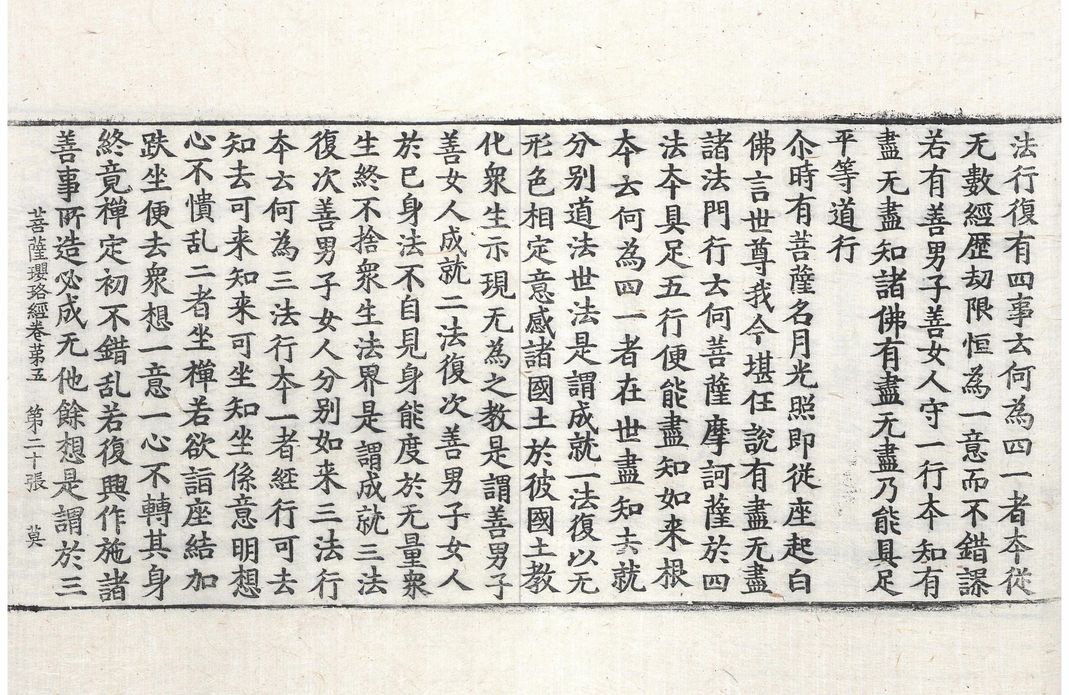 法行復有四事云何為四一者夲從
无數經歷劫限恒為一意而不錯謬
若有善男子善女人守一行夲知有
盡无盡知諸佛有盡无盡乃能具足
平等道行
尒時有菩薩名月光照即從座起白
佛言世尊我今堪任說有盡无盡
諸法門行云何菩薩摩訶薩於四
法夲具足五行便能盡知如来根
夲云何為四一者在世盡知去就
分别道法世法是謂成就一法復以无
形色相定意感諸國土於彼國土教
化衆生示現无為之教是謂善男子
善女人成就二法復次善男子女人
於已身法不自見身能度於无量衆
生終不捨衆生法界是謂成就三法
復次善男子女人分别如来三法行
夲云何為三法行夲一者經行可去
知去可来知来可坐知坐係意明想
心不憒乱二者坐禪若欲詣座結加
趺坐便去衆想一意一心不轉其身
終竟禪定初不錯乱若復興作施諸
善事所造必成无他餘想是謂於三
菩薩瓔珞經卷第五 第二十張 莫